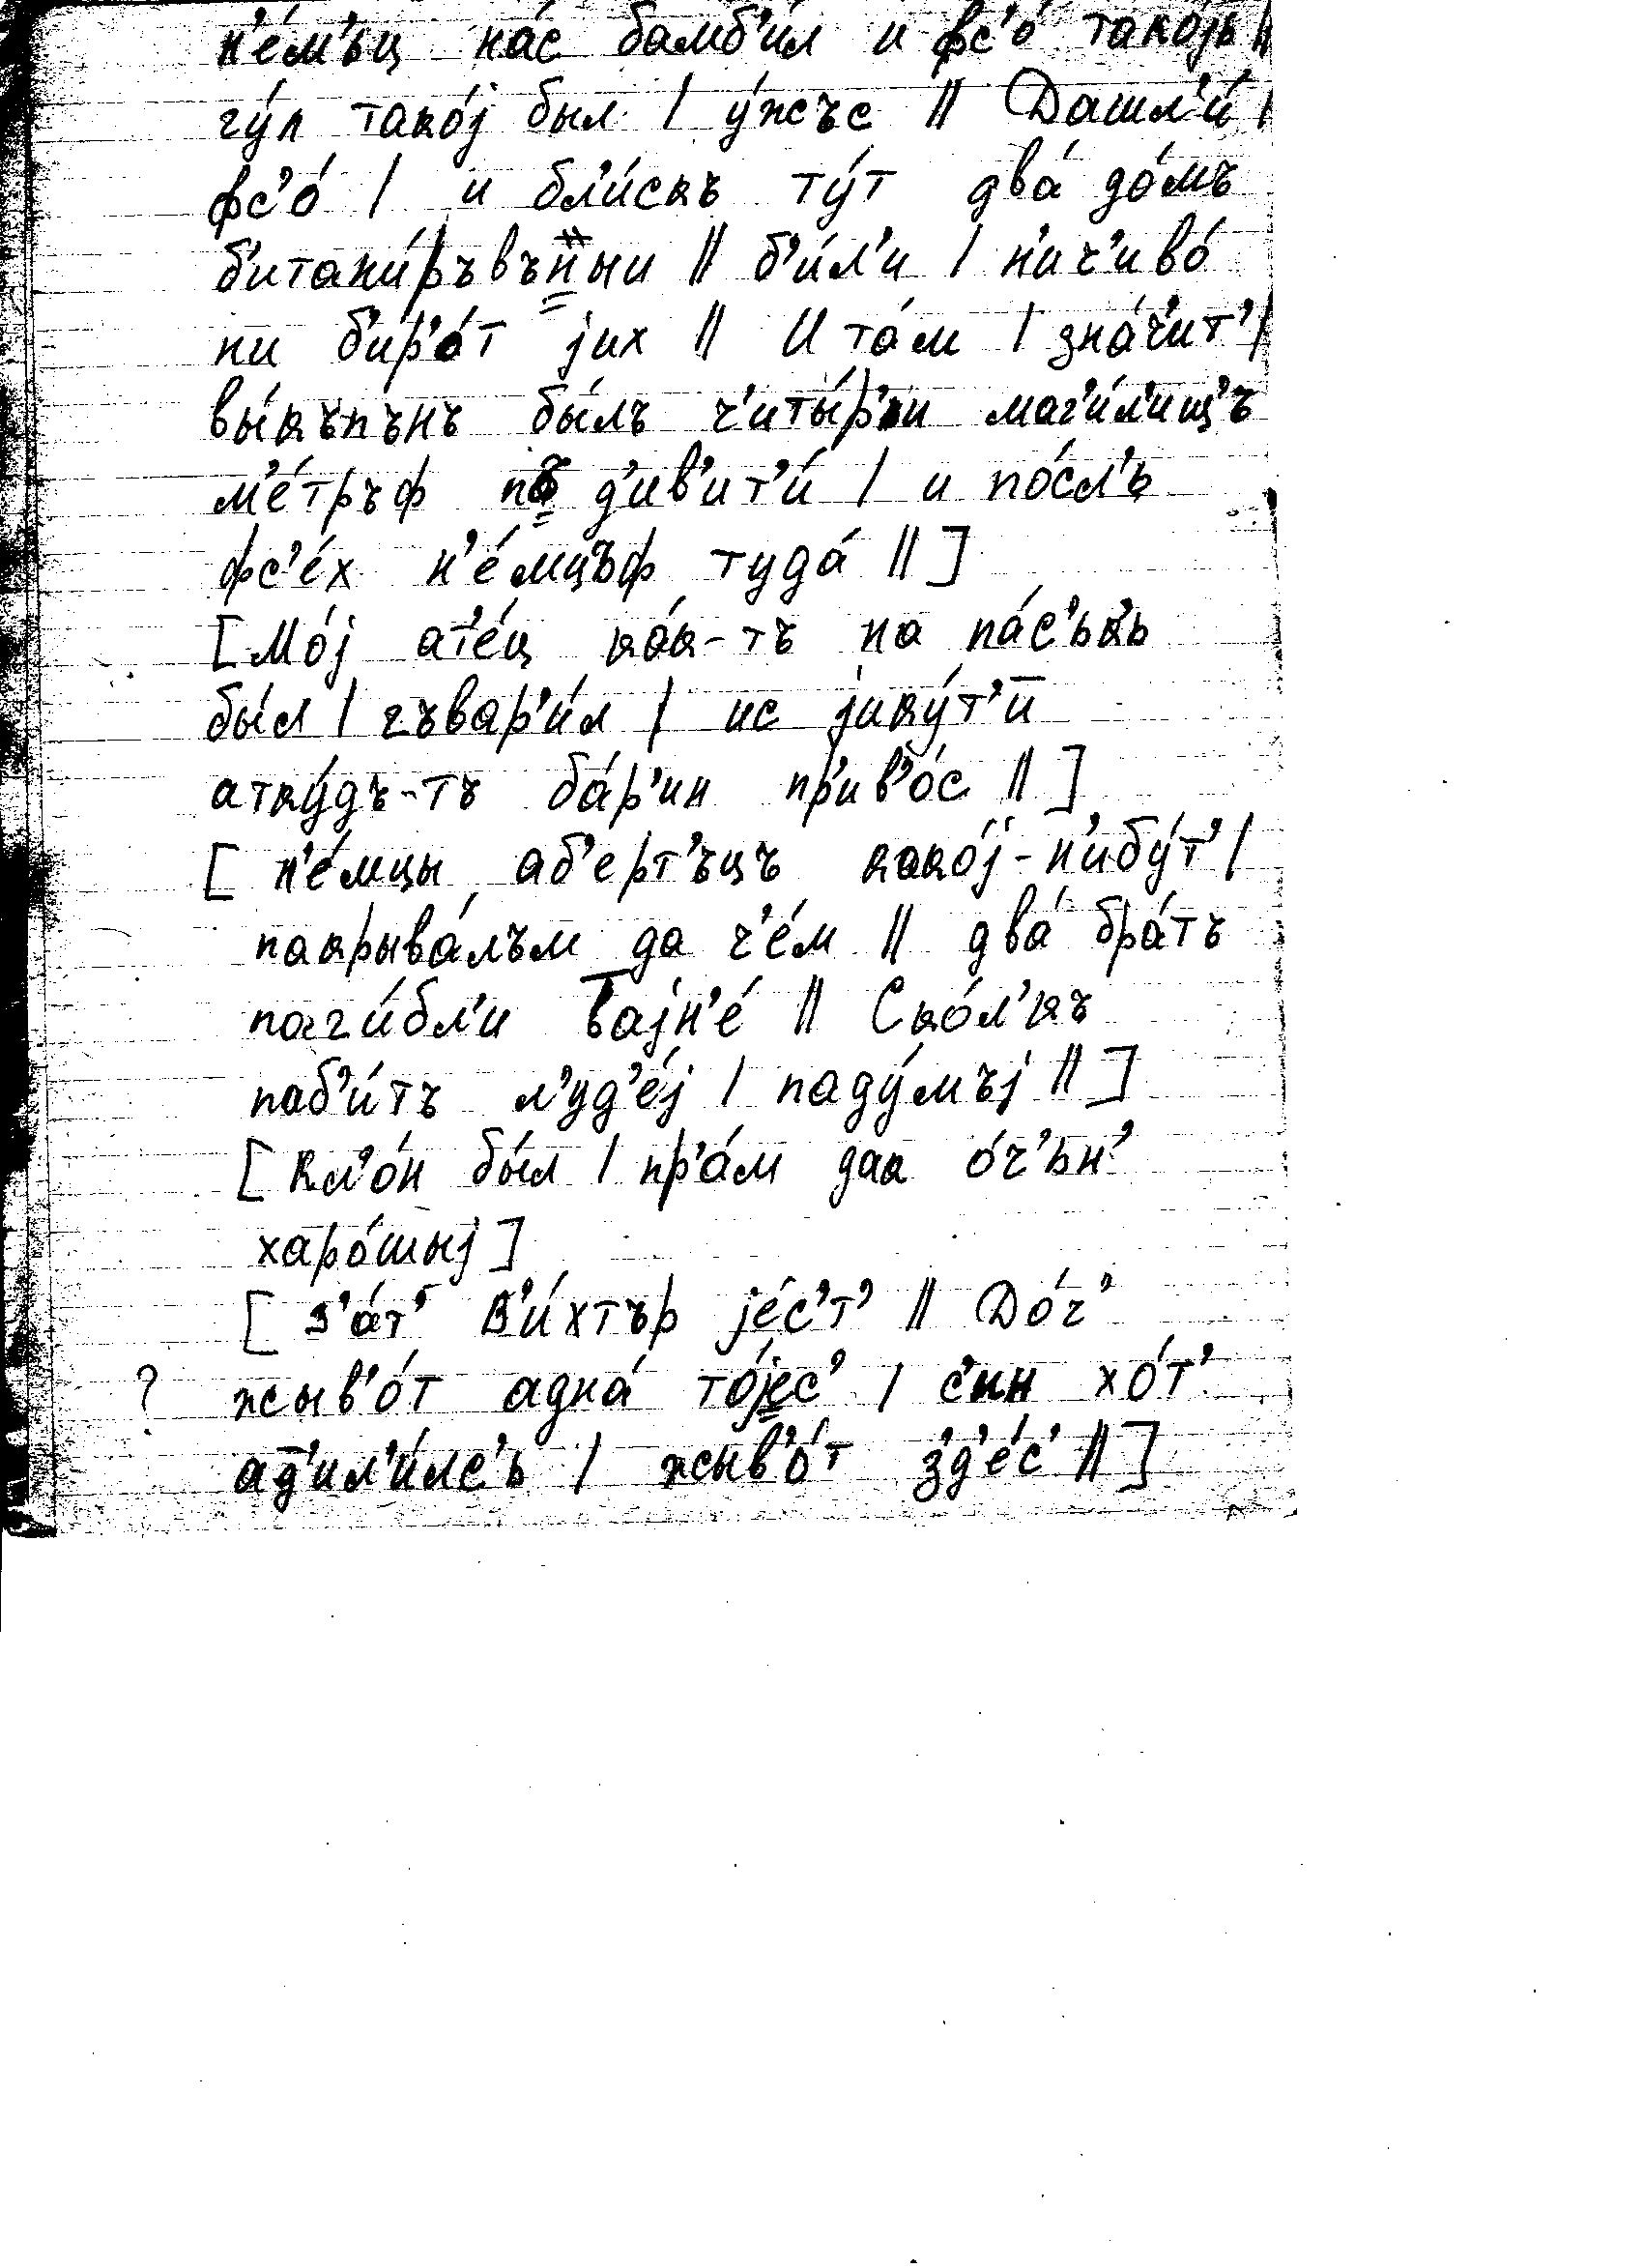 н'е́м'ьц на́с бамб'и́л и фс'о́ тако́јь ||
гу́л тако́ј был | у́жъс || Дашл'и́ |
фс'о́ | и бл'и́скъ ту́т два́ до́мъ
б'итани́ръвъныи || б'и́л'и | н'ич'иво́
ни б'ир'о́т јих || И та́м | зна́ч'ит' |
вы́къпънъ бы́лъ ч'иты́р'и маг'и́л'ищ'ъ
м'е́тръф по д'ив'ит'и́ | и по́сл'ь
фс'е́х н'е́мцъф туда́ || ]
[ Мо́ј ат'е́ц ка́к-тъ на па́с'ьк'ь
бы́л | гъвар'и́л | ис јику́т'и
атку́дъ-тъ ба́р'ин пр'ив'о́с || ]
[ н'е́мцы аб'ерт'ъцъ како́ј-н'ибу́т' |
пакрыва́лъм да ч'е́м || два́ бра́тъ
паги́бл'и вајн'е́ || Ско́л'къ
паб'и́тъ л'уд'е́ј | паду́мъј || ]
[ Кл'о́н бы́л | пр'а́м дак о́ч'ьн'
харо́шыј ]
[ З'а́т' В'и́хтър је́с'т' || До́ч'
? жыв'о́т адна́ то́јес' | с'ин хо́т'
ад'ил'и́лс'ь | жыв'о́т з'д'е́с' || ]